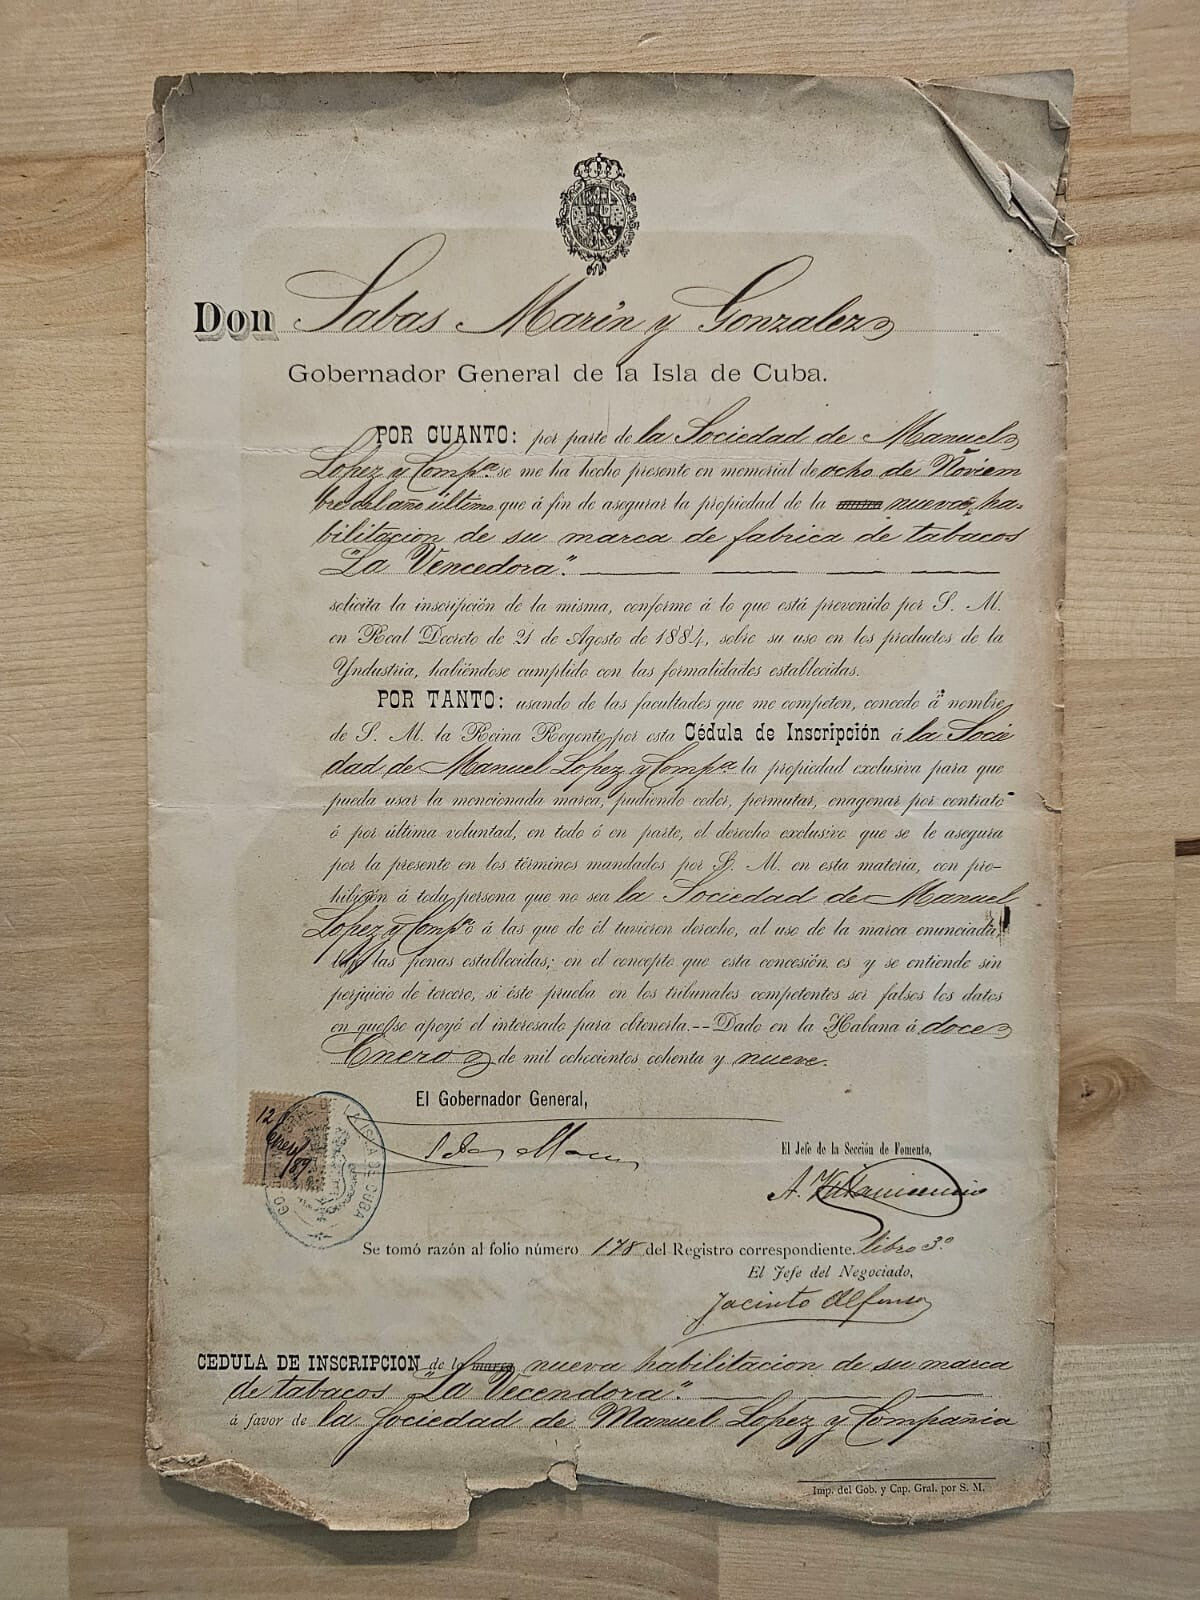 Don Sabas Marin y Gonzalez
Gobernador General de la Isla de Cuba.
POR CUANTO: por parte de la Sociedad de Manuel
Lopez y Compª se me ha hecho presente en memorial de ocho de Noviem
bre del año último que á fin de asegurar la propiedad de la marca nueva ha-
bilitacion de su marca de fabrica de tabacos
"La Vencedora".
solicita la inscripción de la misma, conforme á lo que está prevenido por S. M.
en Real Decreto de 21 de Agosto de 1884, sobre su uso en los productos de la
Yndustria, habiéndose cumplido con las formalidades establecidas.
POR TANTO: usando de las facultades que me competen, concedo á nombre
de S. M. la Reina Regente por esta Cédula de Inscripción á la Socie
dad de Manuel Lopez y Compª la propiedad exclusiva para que
pueda usar la mencionada marca, pudiendo ceder, permutar, enagenar por contrato
ó por última voluntad, en todo ó en parte, el derecho exclusivo que se le asegura
por la presente en los términos mandados por S. M. en esta materia, con pro-
hibición á toda persona que no sea la Sociedad de Manuel
Lopez y Compª ó á las que de él tuvieren derecho, al uso de la marca enunciada,
bajo las penas establecidas; en el concepto que esta concesión es y se entiende sin
perjuicio de tercero, si éste prueba en los tribunales competentes ser falsos los datos
en que se apoyó el interesado para obtenerla.--Dado en la Habana á doce
Enero de mil ochocientos ochenta y nueve.
El Gobernador General,
12
Enero
/89.
ISLA DE CUBA
Sabas Marin
El Jefe de la Sección de Fomento,
A.
Se tomó razón al folio número 178 del Registro correspondiente. libro 3º
El Jefe del Negociado,
Jacinto Alfonso
CEDULA DE INSCRIPCION de la marca nueva habilitacion de su marca
de tabacos "La Vecendora".
á favor de la Sociedad de Manuel Lopez y Compañia
Imp. del Gob. y Cap. Gral. por S. M.